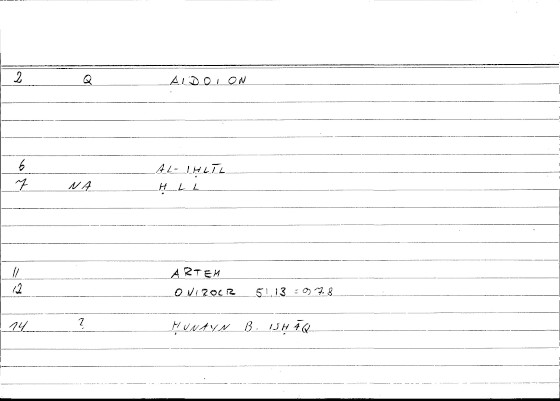 2 Q AIDOION
6 AL-IḤLĪL
7 NA ḤLL
11 ARTEM
12 OVIZOLR 51.13 = 978
14 ? ḤUNAYN B. ISḤĀQ